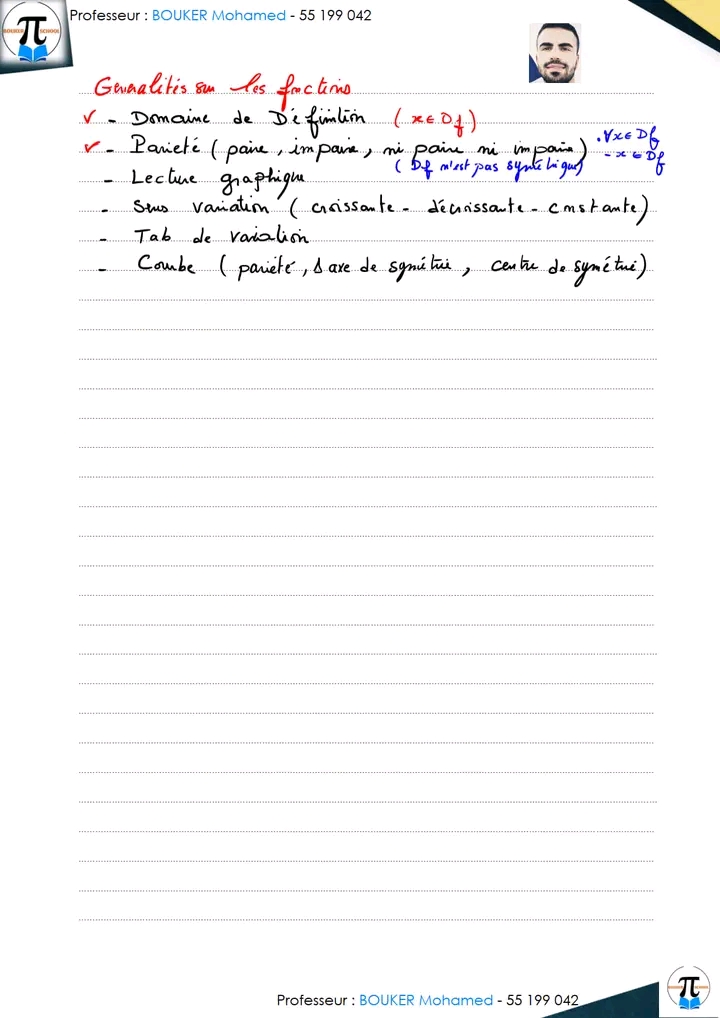 Professeur : BOUKER Mohamed - 55 199 042
BOUKER SCHOOL
Généralités sur les fonctions
✓ - Domaine de Définition ( x ∈ Df )
✓ - Parieté ( paire , impaire , ni paire ni impaire ) . ∀x ∈ Df
( Df n'est pas symétrique ) - x ∈ Df
- Lecture graphique
- Sens variation ( croissante - décroissante - constante )
- Tab de variation
- Courbe ( parieté , Δ axe de symétrie , centre de symétrie )
Professeur : BOUKER Mohamed - 55 199 042